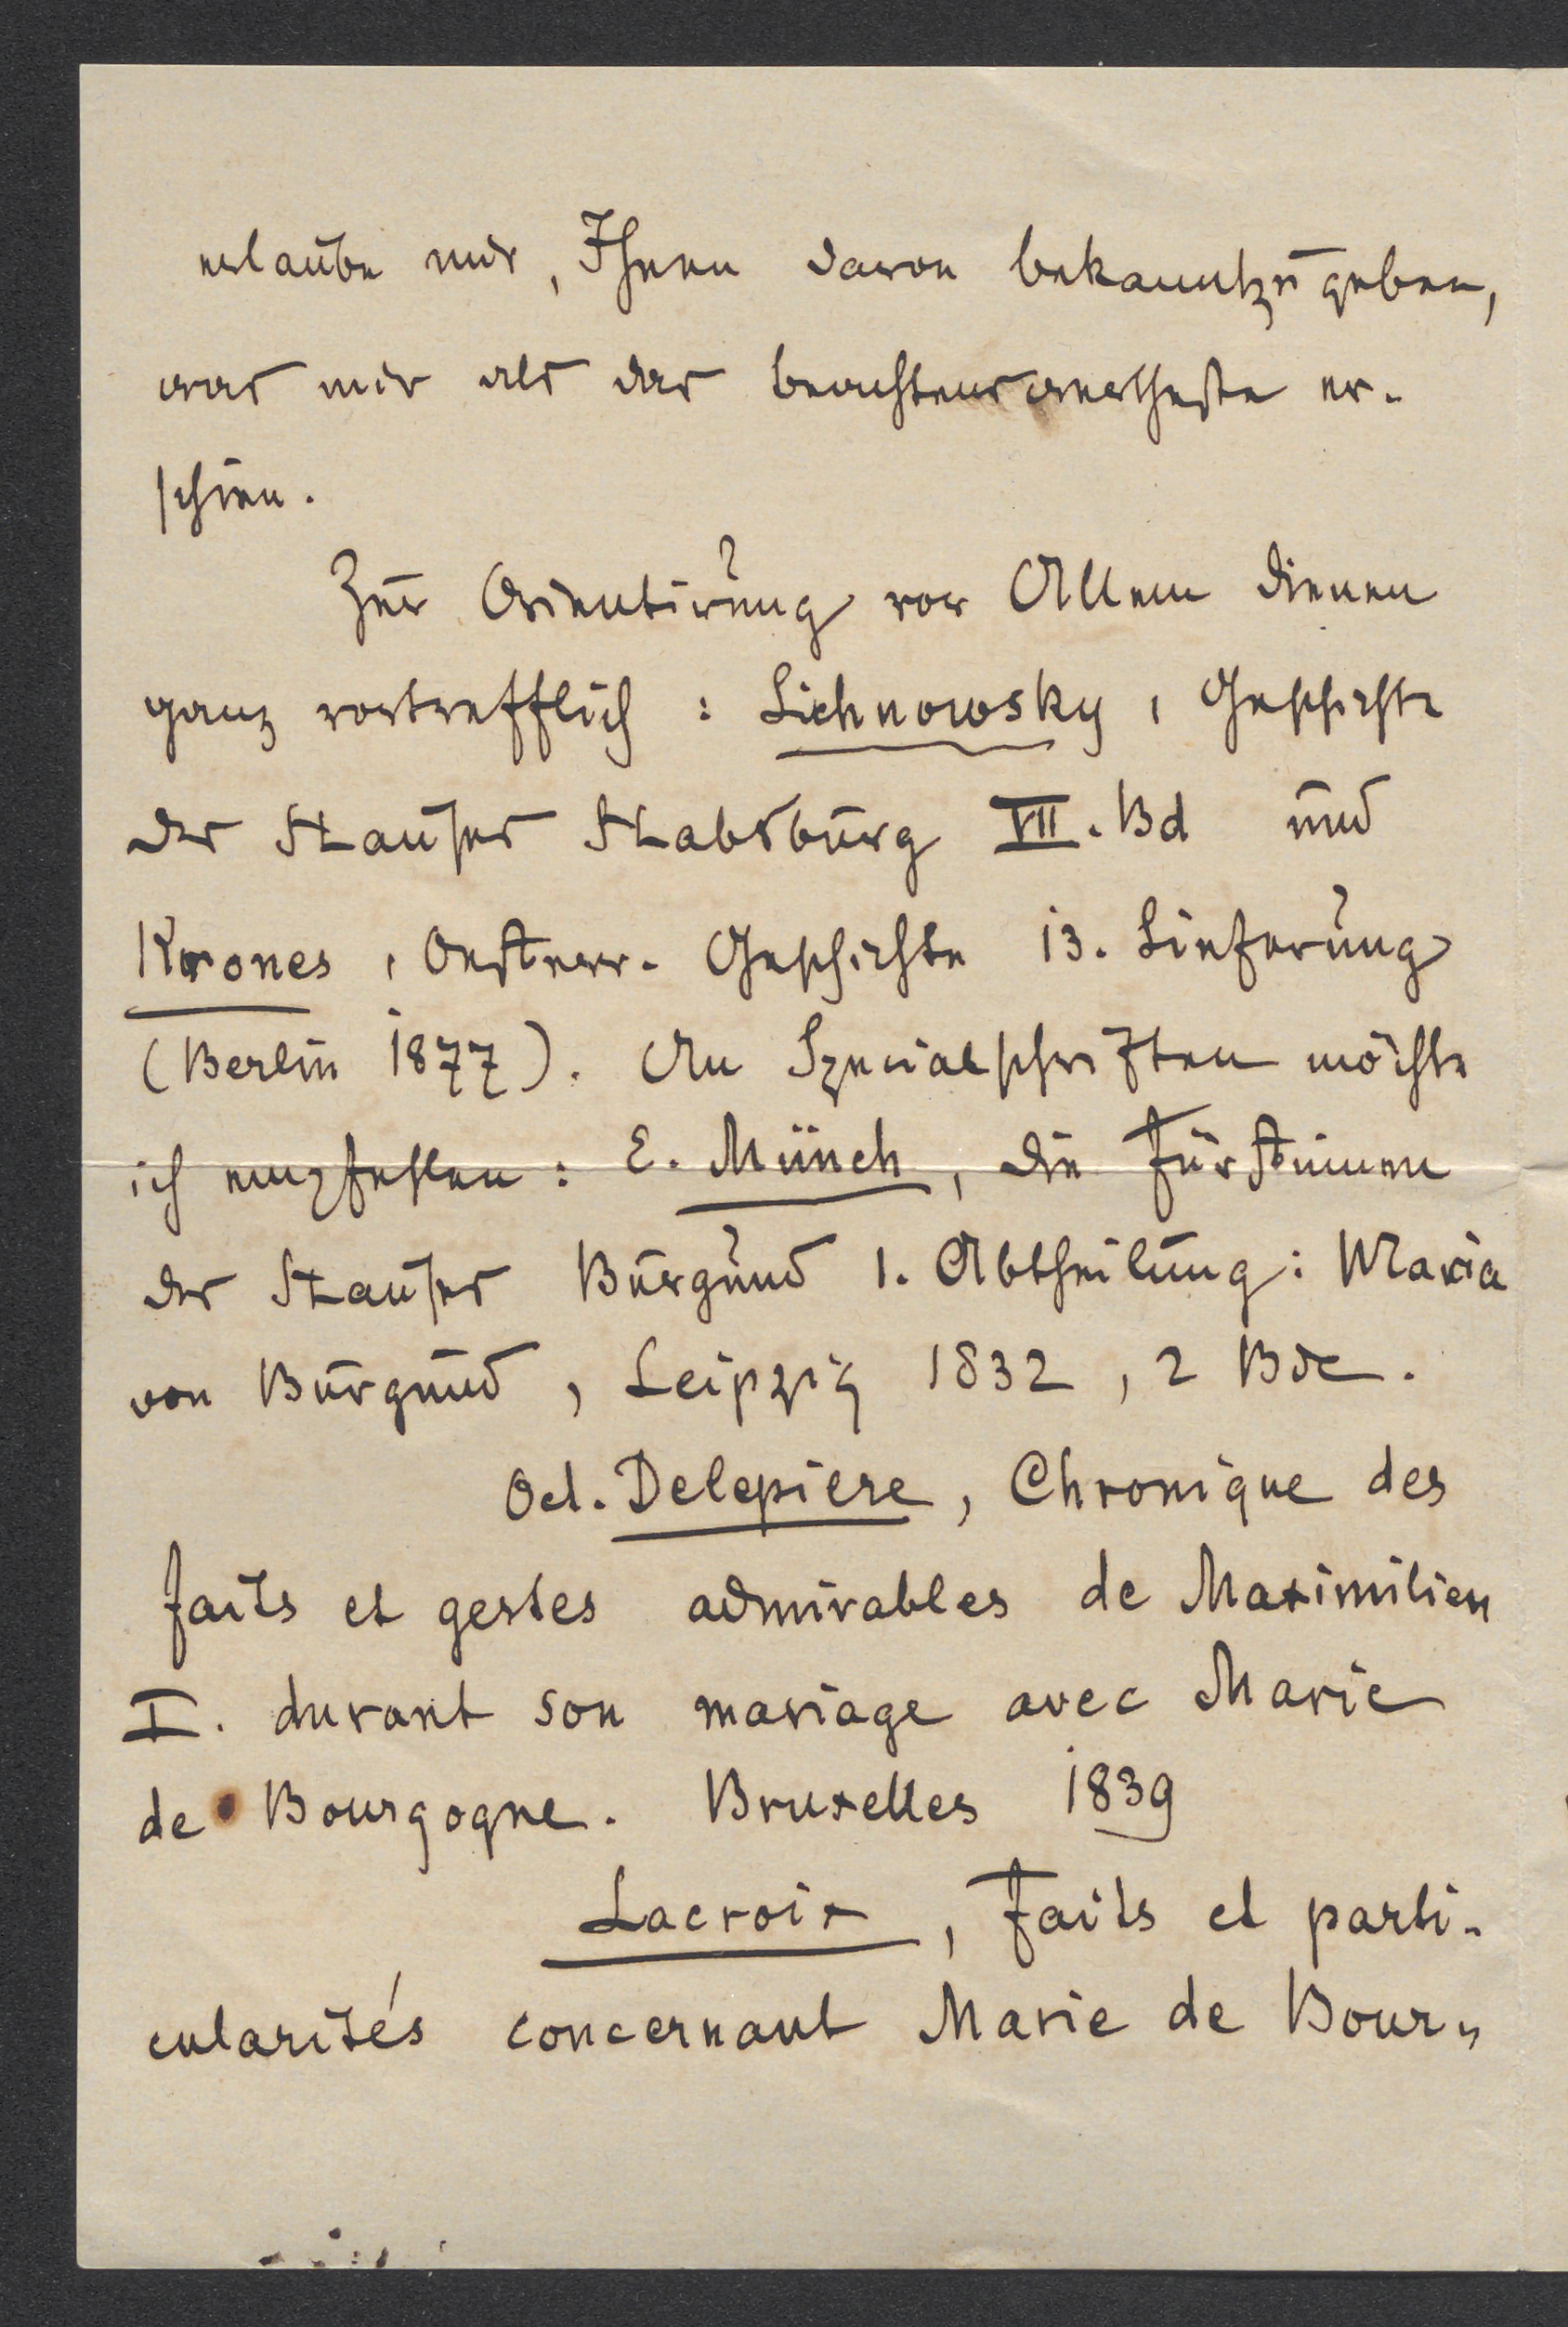 erlaube mir, Ihnen davon bekanntzugeben,
was mir als das beachtenswertheste er-
schien.
Zur Orientirung vor Allem dienen
ganz vortrefflich: Lichnowsky, Geschichte
des Hauses Habsburg VII. Bd und
Krones, Oesterr. Geschichte 13. Lieferung
(Berlin 1877). An Specialschriften möchte
ich empfehlen: E. Münch, die Fürstinnen
des Hauses Burgund 1. Abtheilung: Maria
von Burgund, Leipzig 1832, 2 Bde.
Oct. Delepierre, Chronique des
faits et gestes admirables de Maximilien
I. durant son mariage avec Marie
de Bourgogne. Bruxelles 1839
Lacroix, Faits et parti-
cularités concernant Marie de Bour-